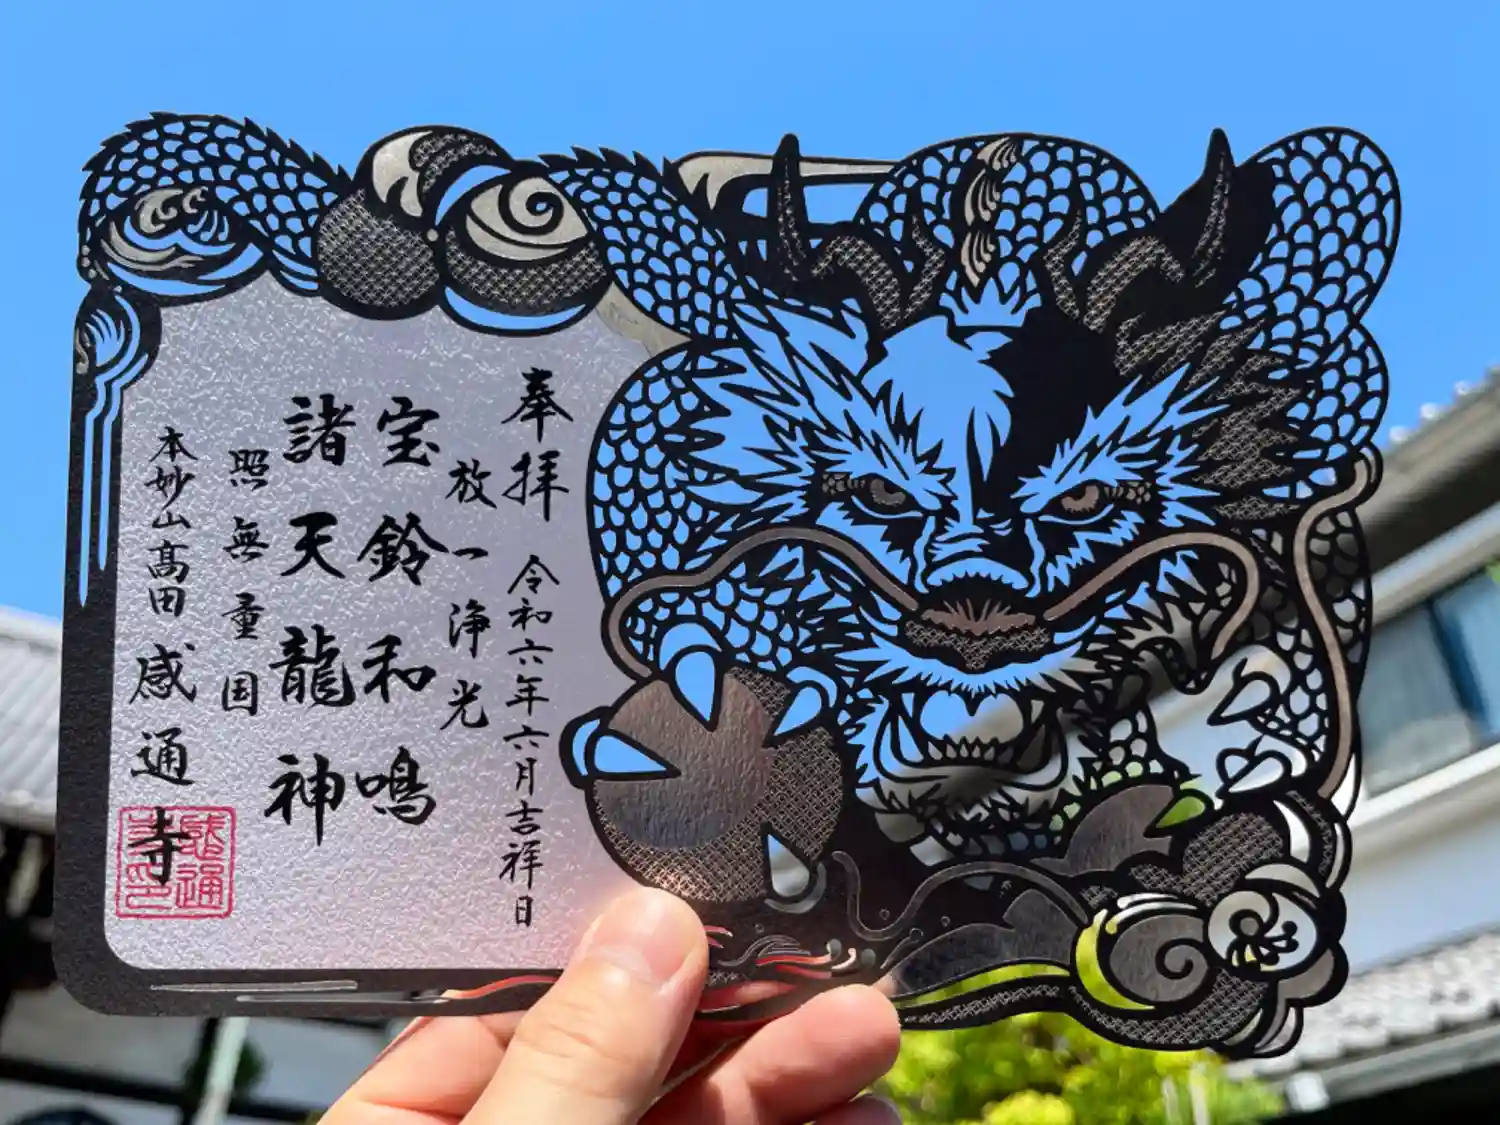 奉拝 令和六年六月吉祥日
放一浄光
宝鈴和鳴
諸天龍神
照無量国
本妙山髙田感通寺
感通寺印